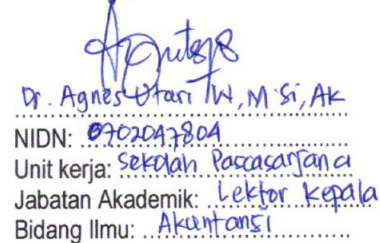 Dr. Agnes Utari TW, M.Si, Ak
NIDN: 0702047804
Unit kerja: Sekolah Pascasarjana
Jabatan Akademik: Lektor Kepala
Bidang Ilmu: Akuntansi